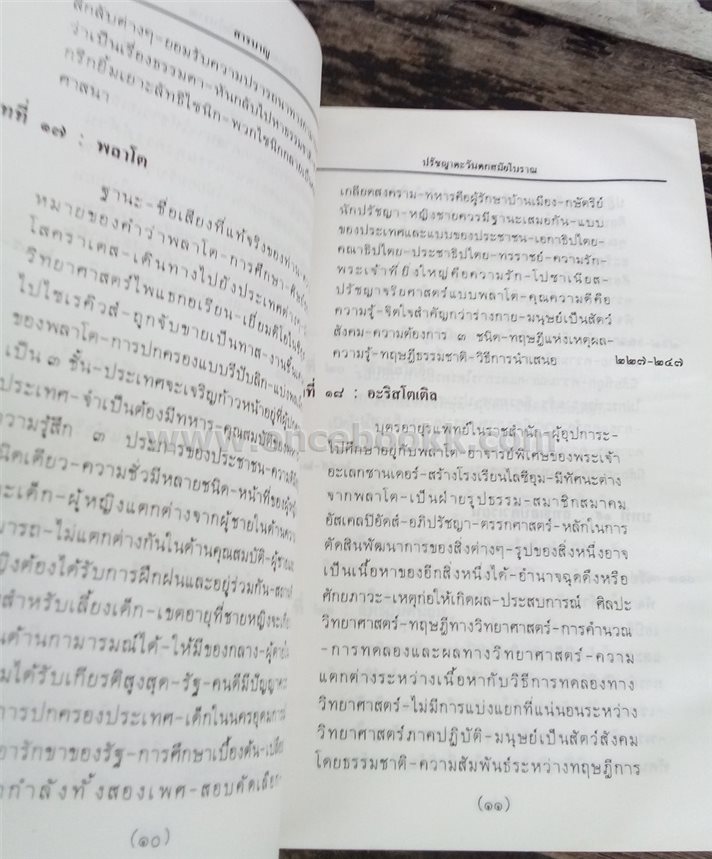 สารบาญ
สึกลับต่างๆ-ยอมรับความปรารถนาทาง
ว่าเป็นเรื่องธรรมดา-หันกลับไปหาธรรม
กรีกยิ้มเยาะลัทธิไซนิก-พวกไซนิกกลาย
ศาสนา
ทที่ ๑๗ : พลาโต
ฐานะ-ชื่อเสียงที่แท้จริงของท่าน
หมายของคำว่าพลาโต-การศึกษา
โสคราเตส-เดินทางไปยังประเทศต่าง
วิทยาศาสตร์ไพแธกอเรียน-เยี่ยมดิโอ
ไปไซเรคิวส์-ถูกจับขายเป็นทาส
ของพลาโต-การปกครองแบบรีปับลิก
เป็น ๓ ชั้น-ประเทศจะเจริญก้าวหน้าอยู่ที่
ประเทศ-จำเป็นต้องมีทหาร-คุณสมบัติ
ความรู้สึก ๓ ประการของประชาชน
นิดเดียว-ความชั่วมีหลายชนิด-หน้าที่ของ
ะเด็ก-ผู้หญิงแตกต่างจากผู้ชายในด้าน
มารถ-ไม่แตกต่างกันในด้านคุณสมบัติ
ญิงต้องได้รับการฝึกฝนและอยู่ร่วมกัน
สำหรับเลี้ยงเด็ก-เขตอายุที่ชายหญิงจะ
นด้านกามารมณ์ได้-ให้มีของกลาง
มได้รับเกียรติสูงสุด-รัฐ-คนดีมีปัญญา
การปกครองประเทศ-เด็กในนครอุดมการณ์
อารักขาของรัฐ-การศึกษาเบื้องต้น
กำลังทั้งสองเพศ-สอบคัดเลือก
(๑๐)
ปรัชญาตะวันตกสมัยโบราณ
เกลียดสงคราม-ทหารคือผู้รักษาบ้านเมือง-กษัตริย์
นักปรัชญา-หญิงชายควรมีฐานะเสมอกัน-แบบ
ของประเทศและแบบของประชาชน-เอกาธิปไตย-
คณาธิปไตย-ประชาธิปไตย-ทรราชย์-ความรัก-
พระเจ้าที่ยิ่งใหญ่คือความรัก-โปซาเนียส-
ปรัชญาจริยศาสตร์แบบพลาโต-คุณความดีคือ
ความรู้-จิตใจสำคัญกว่าร่างกาย-มนุษย์เป็นสัตว์
สังคม-ความต้องการ ๓ ชนิด-ทฤษฎีแห่งเหตุผล-
ความรู้-ทฤษฎีธรรมชาติ-วิธีการนำเสนอ ๒๒๗-๒๔๗
ที่ ๑๘ : อะริสโตเติล
บุตรอายุรแพทย์ในราชสำนัก-ผู้อุปการะ-
ไปศึกษาอยู่กับพลาโต-อาจารย์พิเศษของพระเจ้า
อะเลกซานเดอร์-สร้างโรงเรียนไลซีอุม-มีทัศนะต่าง
จากพลาโต-เป็นฝ่ายรูปธรรม-สมาชิกสมาคม
อัสเคลปิอัดส์-อภิปรัชญา-ตรรกศาสตร์-หลักในการ
ตัดสินพัฒนาการของสิ่งต่างๆ-รูปของสิ่งหนึ่งอาจ
เป็นเนื้อหาของอีกสิ่งหนึ่งได้-อำนาจฉุดดึงหรือ
ศักยภาวะ-เหตุก่อให้เกิดผล-ประสบการณ์ ศิลปะ
วิทยาศาสตร์-ทฤษฎีทางวิทยาศาสตร์-การคำนวณ
-การทดลองและผลทางวิทยาศาสตร์-ความ
แตกต่างระหว่างเนื้อหากับวิธีการทดลองทาง
วิทยาศาสตร์-ไม่มีการแบ่งแยกที่แน่นอนระหว่าง
วิทยาศาสตร์ภาคปฏิบัติ-มนุษย์เป็นสัตว์สังคม
โดยธรรมชาติ-ความสัมพันธ์ระหว่างทฤษฎีการ
(๑๑)